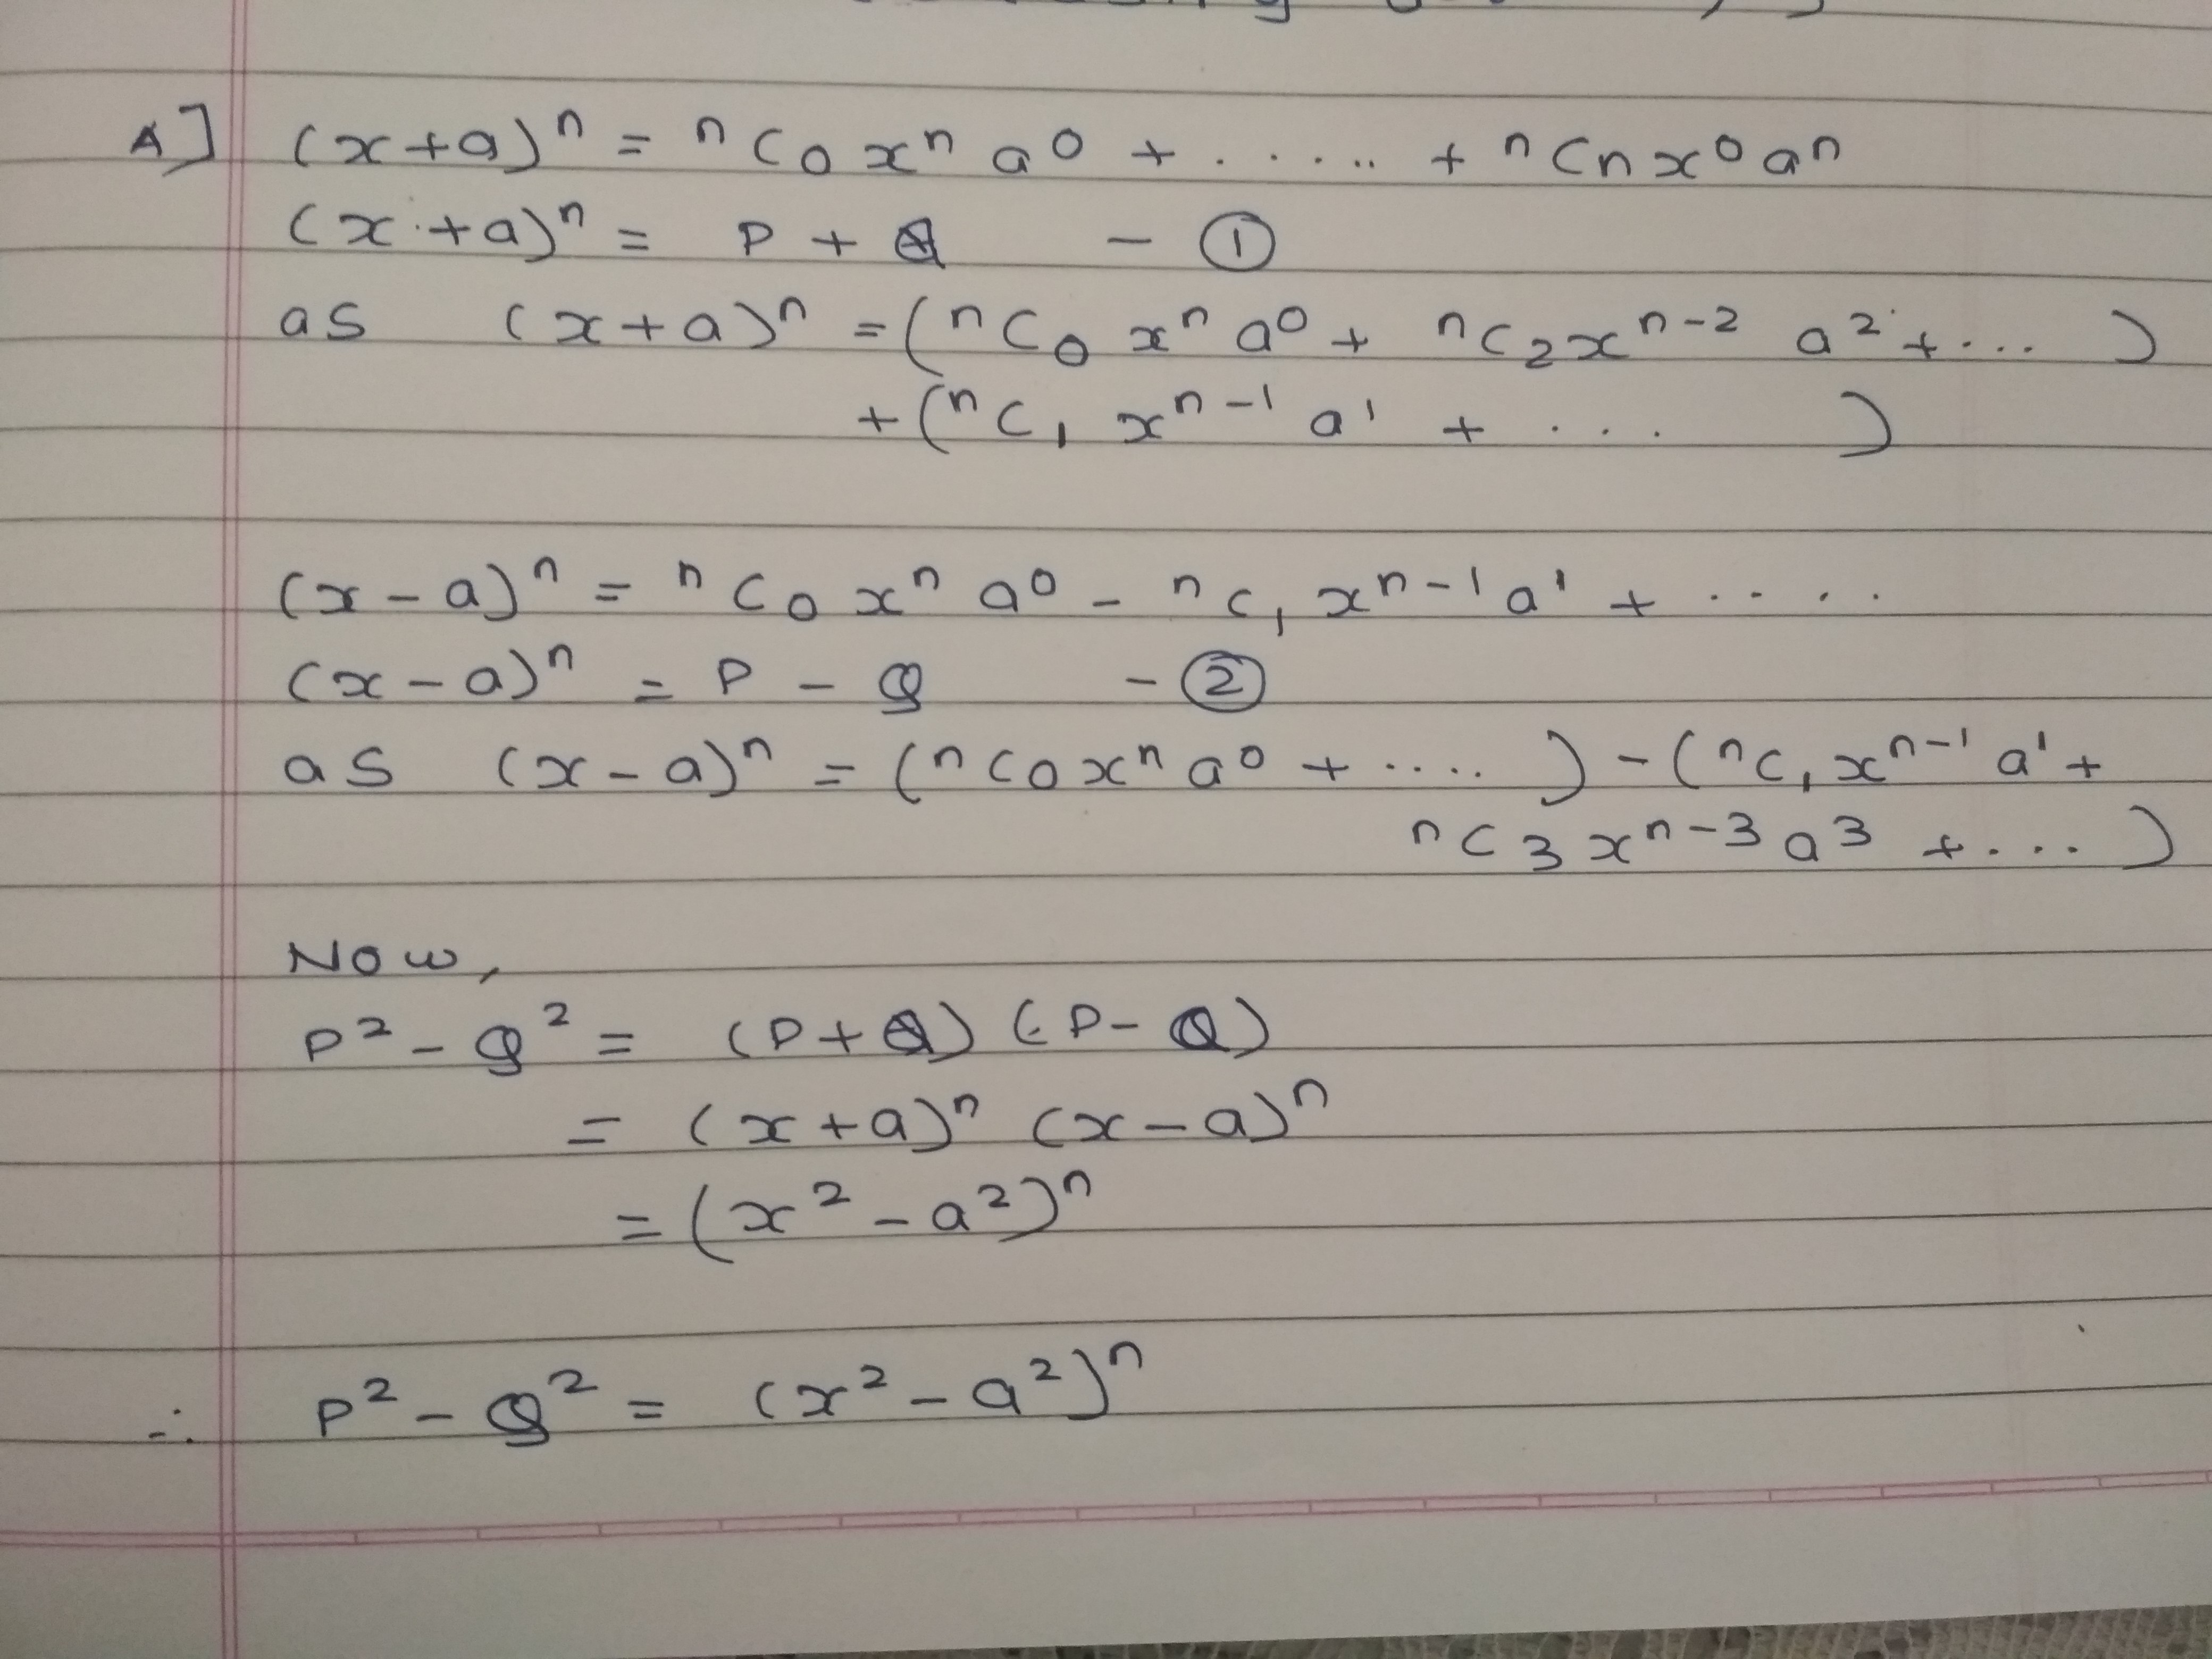 A] (x+a)ⁿ = ⁿC₀ xⁿ a⁰ + ...... + ⁿCₙ x⁰ aⁿ
(x+a)ⁿ = P + Q - ①
as (x+a)ⁿ = (ⁿC₀ xⁿ a⁰ + ⁿC₂ xⁿ⁻² a² + ... )
+ (ⁿC₁ xⁿ⁻¹ a¹ + ... )
(x-a)ⁿ = ⁿC₀ xⁿ a⁰ - ⁿC₁ xⁿ⁻¹ a¹ + ....
(x-a)ⁿ = P - Q - ②
as (x-a)ⁿ = (ⁿC₀ xⁿ a⁰ + .... ) - (ⁿC₁ xⁿ⁻¹ a¹ +
ⁿC₃ xⁿ⁻³ a³ + ... )
Now,
P² - Q² = (P+Q) (P-Q)
= (x+a)ⁿ (x-a)ⁿ
= (x² - a²)ⁿ
∴ P² - Q² = (x² - a²)ⁿ